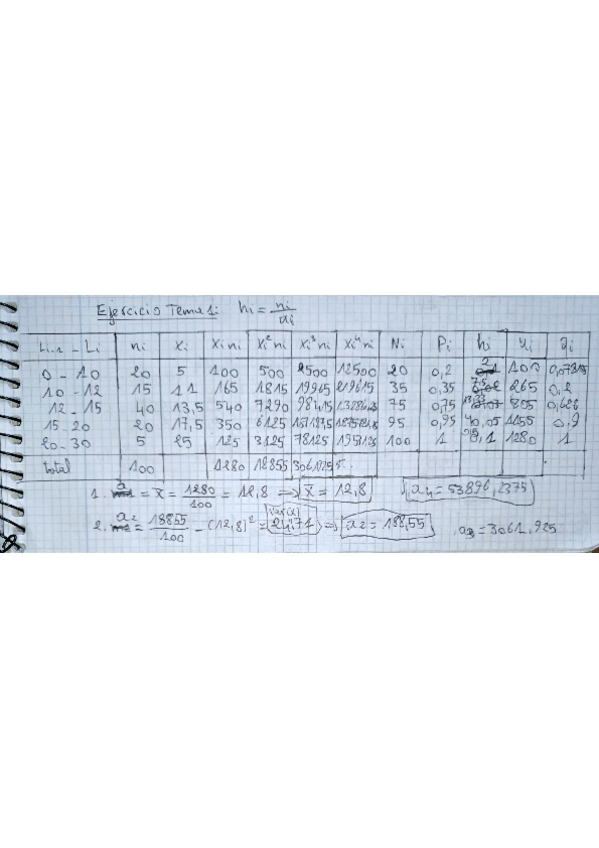 Ejercicio Tema 1: hi = ni/ai
Li-1 - Li ni xi xi ni xi² ni xi³ ni xi⁴ ni Ni Pi hi ui qi
0 - 10 20 5 100 500 2500 12500 20 0,2 2 100
10 - 12 15 11 165 1815 19965 219615 35 0,35 7,5 265 0,2
12 - 15 40 13,5 540 7290 98415 75 0,75 805
15 - 20 20 17,5 350 6125 95 0,95 1155 0,9
20 - 30 5 25 125 3125 78125 1953125 100 1 1280 1
total 100 1280 18855
1. a1 = x̄ = 1280/100 = 12,8 ⇒ x̄ = 12,8 a4 = 53896,2375
2. a2 = 18855/100 - (12,8)² = 24,71 ⇒ a2 = 188,55 a3 = 3061,925
var(x)